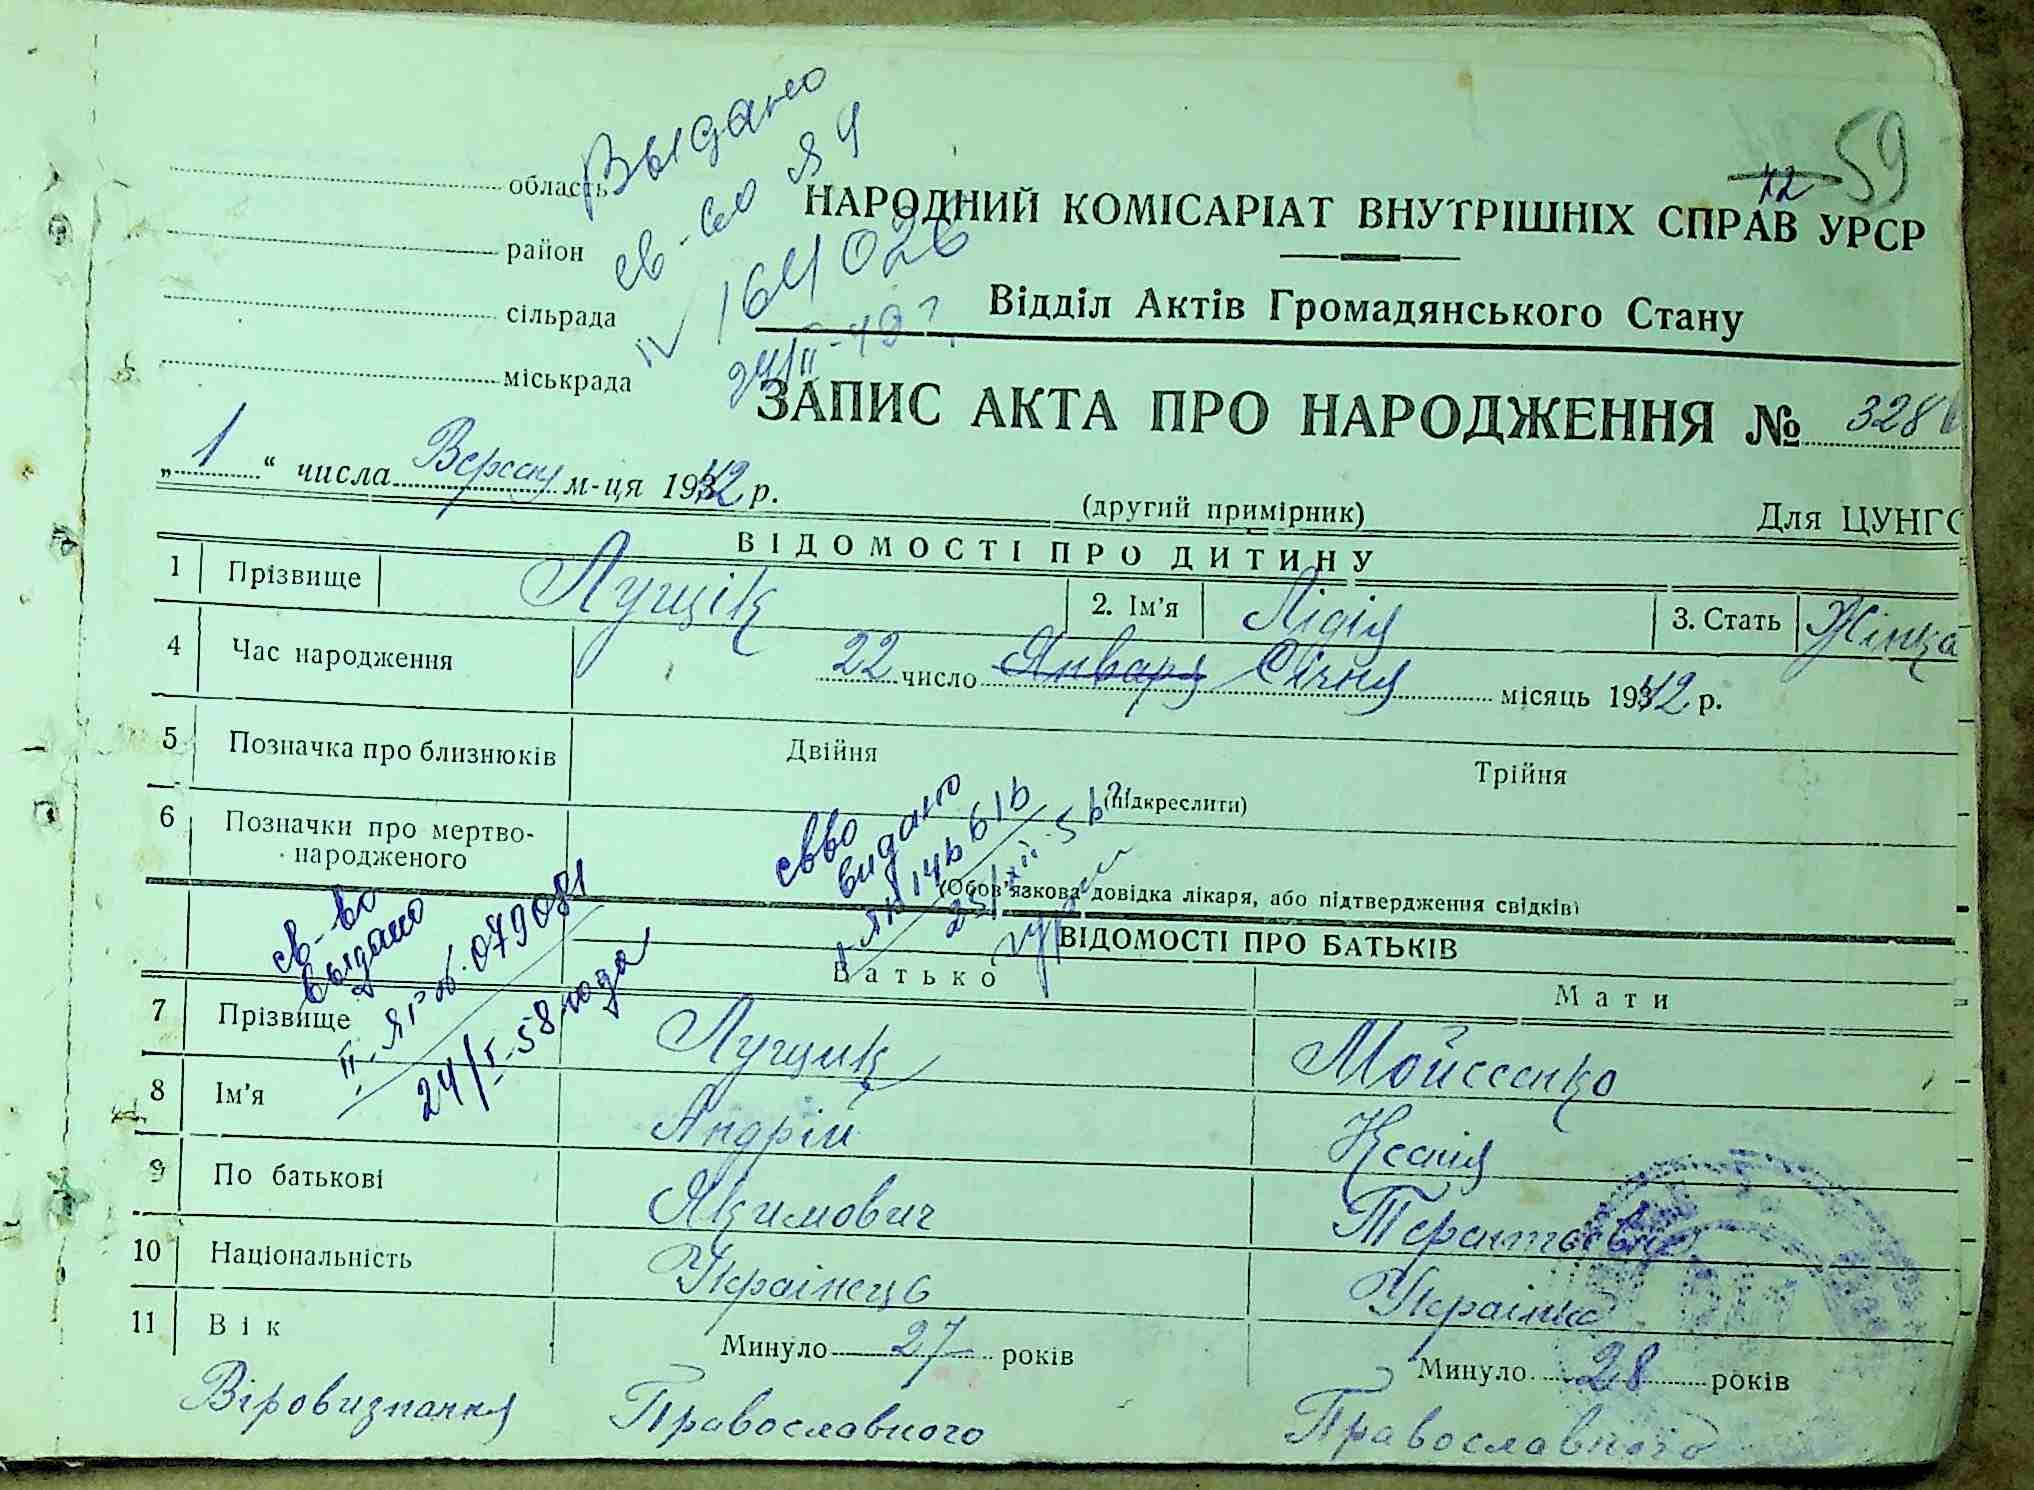 59
42
Выдано
св-во ЯЧ
164026
область
район
сільрада
міськрада
НАРОДНИЙ КОМІСАРІАТ ВНУТРІШНІХ СПРАВ УРСР
Відділ Актів Громадянського Стану
ЗАПИС АКТА ПРО НАРОДЖЕННЯ № 328
„ 1 “ числа Вересня м-ця 1942 р.
(другий примірник)
Для ЦУНГО
ВІДОМОСТІ ПРО ДИТИНУ
1 Прізвище Лущік 2. Ім'я Лідія 3. Стать Жінка
4 Час народження 22 число Января Січня місяць 1942 р.
5 Позначка про близнюків Двійня Трійня
(підкреслити)
6 Позначки про мертво-
народженого
(Обов'язкова довідка лікаря, або підтвердження свідків)
свво
видано
св-во
выдано
II-ЯГ № 079081
24/I-58 года
ВІДОМОСТІ ПРО БАТЬКІВ
Батько Мати
7 Прізвище Лущик Мойсеенко
8 Ім'я Андрій Ксенія
9 По батькові Якимович
10 Національність Українець Українка
11 Вік Минуло 27 років Минуло 28 років
Віровизнання Православного Православного